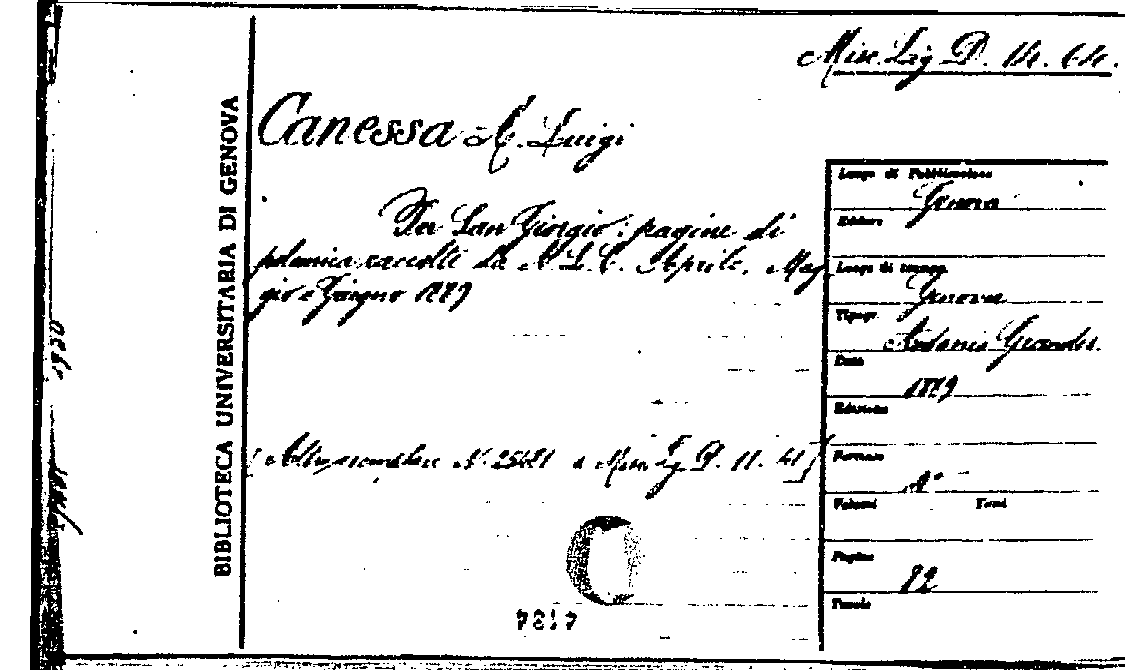 Misc. Lig. D. 14. 64.
Canessa A. Luigi
Per San Giorgio: pagine di
polemica raccolte da A. L. C. Aprile, Mag
gio e Giugno 1879
(Altro esemplare N. 25681 a Misc. Lig. D. 11. 41)
4134
BIBLIOTECA UNIVERSITARIA DI GENOVA
Luogo di Pubblicazione
Genova
Editore
Luogo di stampa
Genova
Tipogr.
Data
1879
Edizione
Formato
Volumi Tomi
Pagine
Tavole